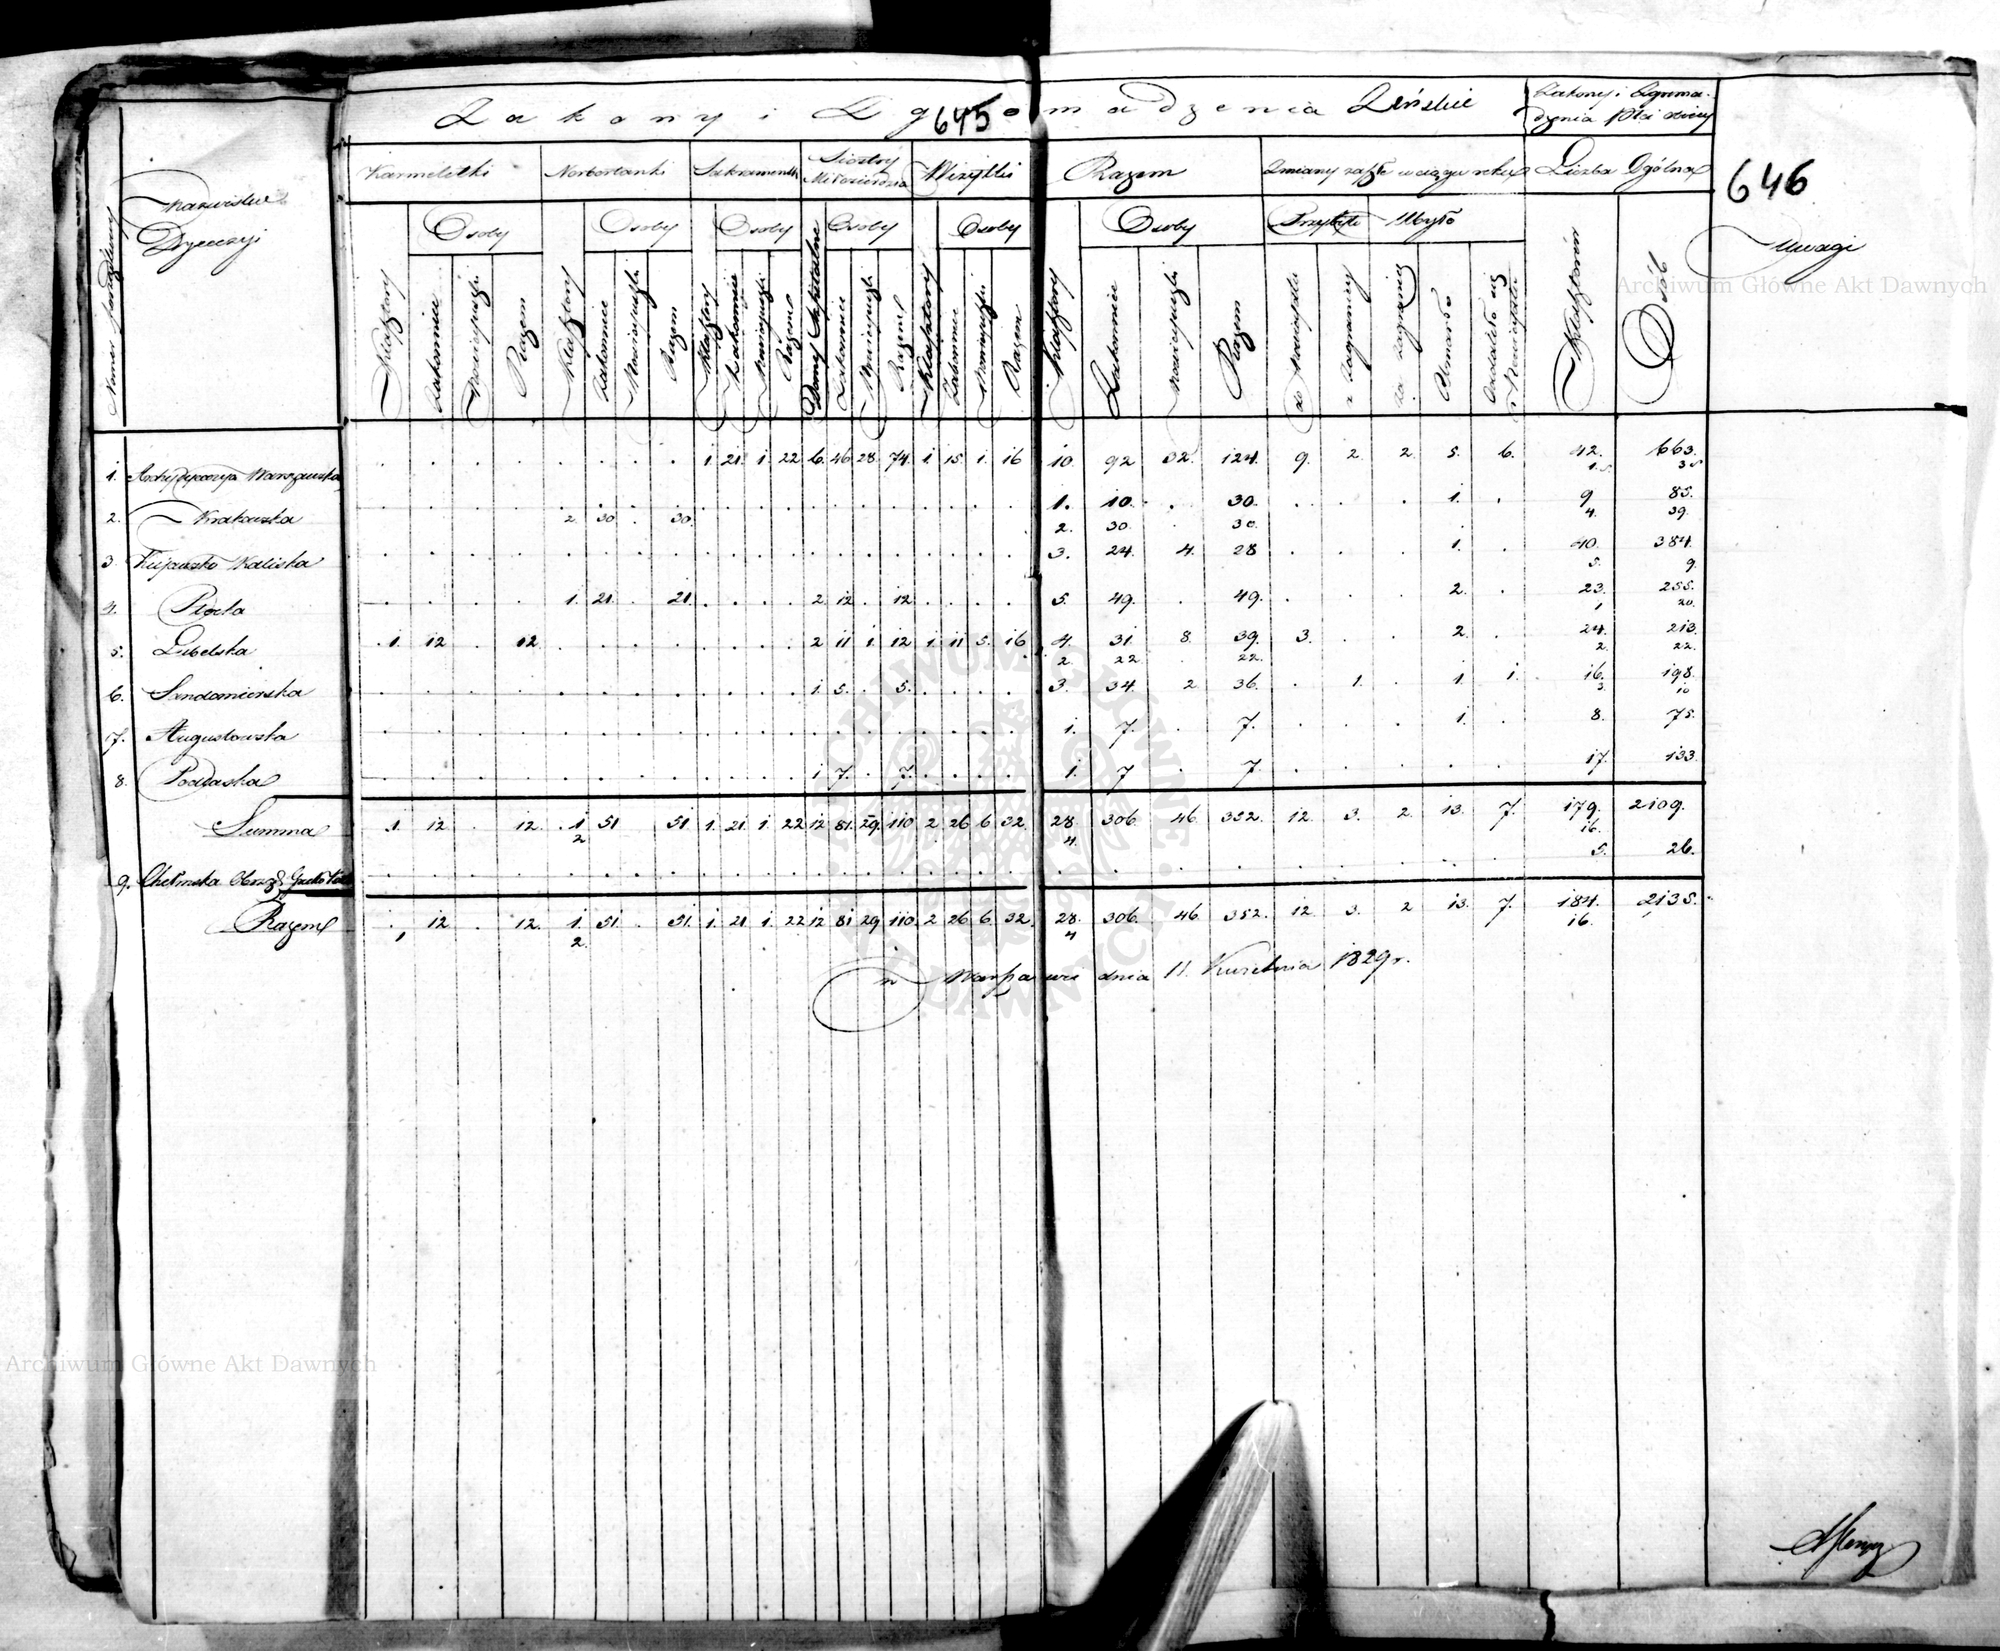 Zakony i Zgromadzenia Żeńskie
Zakony i Zgroma-
dzenia Płci obiey
645
646
Numer porządkowy
Nazwiska
Dyecezyi
Karmelitki
Norbertanki
Sakramentki
Siostry
Miłosierdzia
Wizytki
Razem
Zmiany zaszłe w ciągu roku
Liczba Ogólna
Uwagi
Osoby Osoby Osoby Osoby Osoby Osoby Przybyło Ubyło
Klasztory Zakonnice Nowicyuszki Razem
Klasztory Zakonnice Nowicyuszki Razem
Klasztory Zakonnice Nowicyuszki Razem
Domy Szpitalne Zakonnice Nowicyuszki Razem
Klasztory Zakonnice Nowicyuszki Razem
Klasztory Zakonnice Nowicyuszki Razem
do Nowicyatu z Zagranicy Za Zagranicę Umarło Oddaliło się z Nowicyatu
Klasztorów Osób
1. Archydyecezya Warszawska 1. 21. 1. 22. 6. 46 28. 74. 1. 15. 1. 16 10. 92 32. 124. 9. 2. 2. 5. 6. 42. 663.
2. Krakowska 1. 10. 30. 1. 9 85.
2. 30 30. 2. 30. 30. 4. 39
3. Kujawsko Kaliska 3. 24. 4. 28 1. 40. 384.
5. 9.
4. Płocka 1. 21. 21. 2 12. 12. 5. 49. 49. 2. 23. 255.
1 20.
5. Lubelska 1. 12 12 2 11 1. 12 1. 11 5. 16 4. 31. 8. 39. 3. 2. 24. 213.
2. 22 22. 2. 22.
6. Sandomierska 1. 5. 5. 3. 34. 2 36. 1. 1. 1. 16. 198.
3. 10
7. Augustowska 1. 7. 7. 1. 8. 75.
8. Podlaska 1 7. 7. 1. 7 7. 17. 133.
Summa 1. 12 12. 1 51 51. 1. 21. 1. 22 12 81. 29. 110 2. 26 6. 32. 28. 306. 46. 352. 12. 3. 2. 13. 7. 179. 2109.
2 4. 16.
9. Chełmska Obrz. Grecko 5. 26.
Razem 1 12 12. 1. 51. 51. 1. 21 1. 22 12 81 29 110. 2 26 6. 32. 28. 306. 46. 352. 12. 3. 2 13. 7. 184. 2135.
2. 4 16.
w Warszawie dnia 11. Kwietnia 1829 r.
Archiwum Główne Akt Dawnych
Archiwum Główne Akt Dawnych